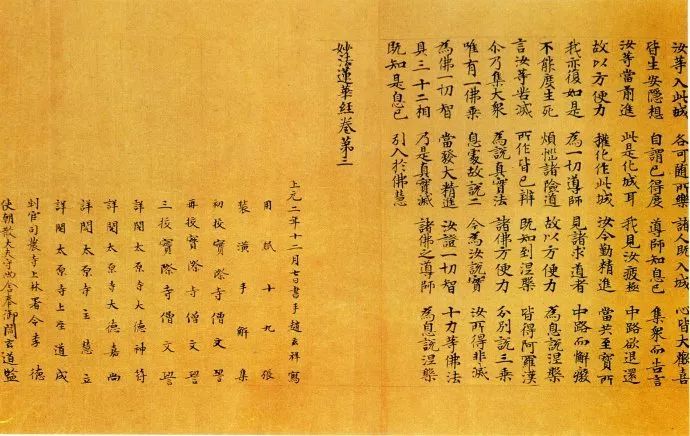 汝等入此城 各可隨所樂 諸人既入城 心皆大歡喜
皆生安隱想 自謂已得度 導師知息已 集衆而告言
汝等當前進 此是化城耳 我見汝疲極 中路欲退還
故以方便力 權化作此城 汝今勤精進 當共至寶所
我亦復如是 為一切導師 見諸求道者 中路而懈癈
不能度生死 煩惱諸險道 故以方便力 為息說涅槃
言汝等苦滅 所作皆已辦 既知到涅槃 皆得阿羅漢
尒乃集大衆 為說真實法 諸佛方便力 分別說三乘
唯有一佛乘 息處故說二 今為汝說實 汝所得非滅
為佛一切智 當發大精進 汝證一切智 十力等佛法
具三十二相 乃是真實滅 諸佛之導師 為息說涅槃
既知是息已 引入於佛慧
妙法蓮華經卷第三
上元二年十二月七日書手趙玄祥寫
用紙十九張
裝潢手解集
初校實際寺僧文
再校實際寺僧文
三校實際寺僧文
詳閱太原寺大德神符
詳閱太原寺大德嘉尚
詳閱太原寺主慧立
詳閱太原寺上座道成
判官司農寺上林署令李德
使朝散大夫守尚舍奉御閻玄道監